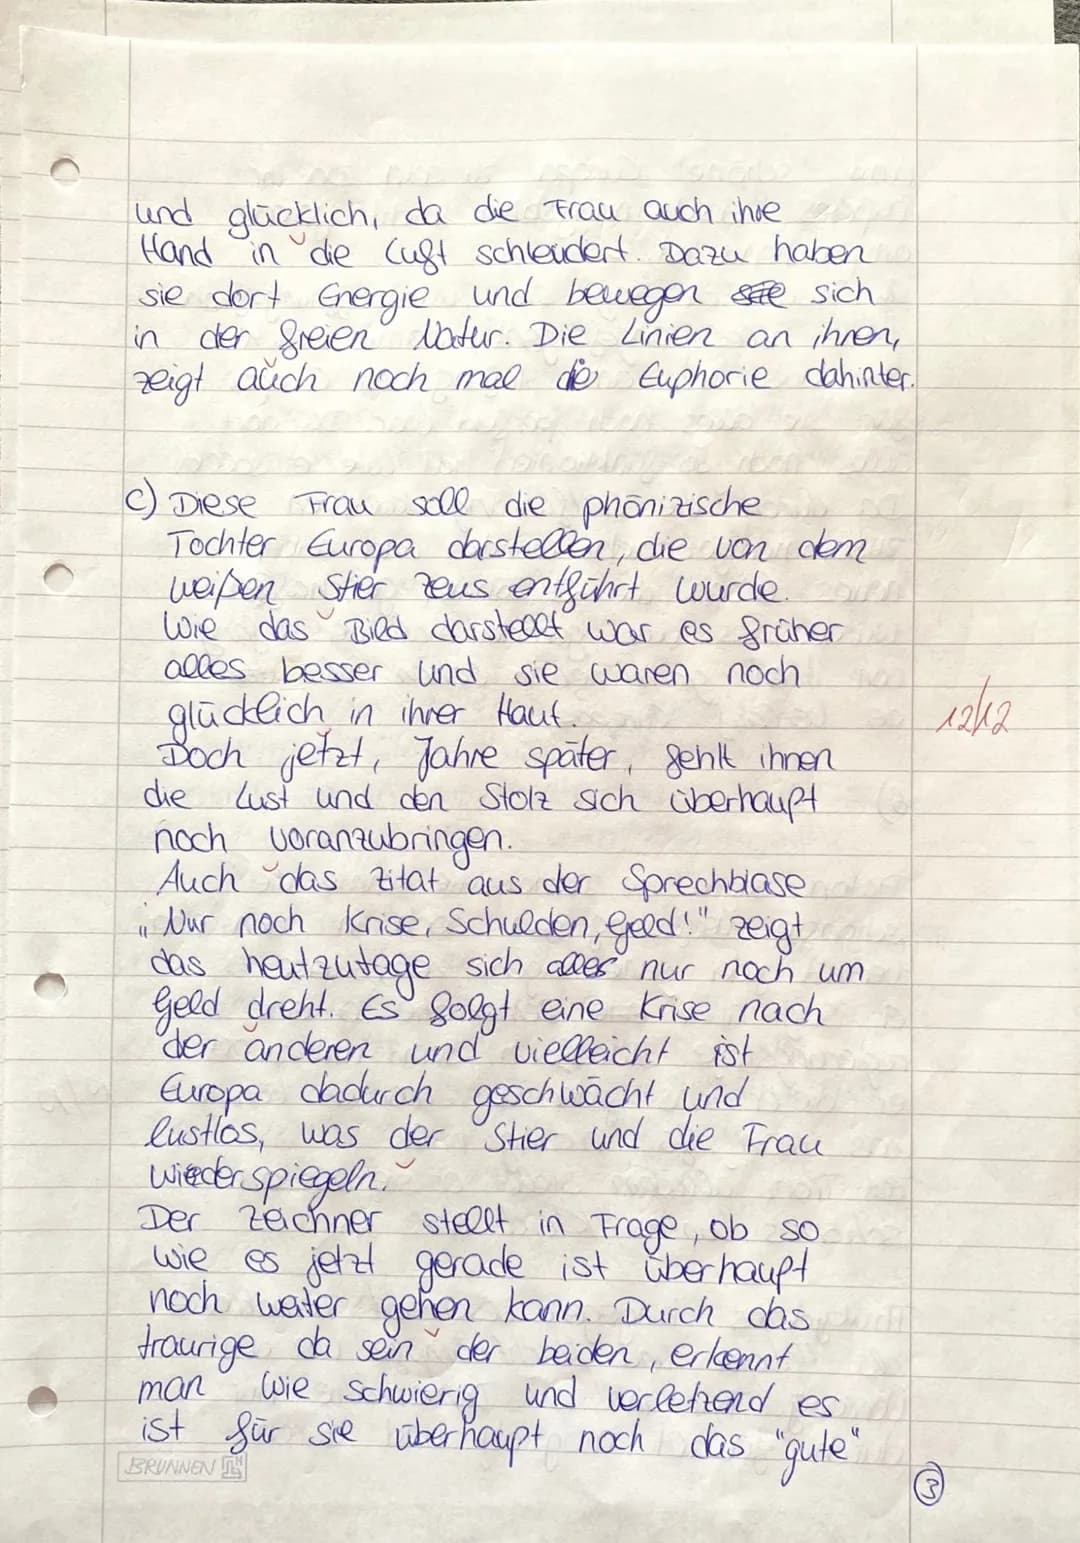 und glücklich, da die Frau auch ihre
Hand in die Luft schleudert. Dazu haben
sie dort Energie und bewegen sich
in der freien Natur. Die Linien an ihren,
zeigt auch noch mal die Euphorie dahinter.
c) Diese Frau soll die phönizische
Tochter Europa darstellen, die von dem
weißen Stier Zeus entführt wurde.
Wie das Bild darstellt war es früher
alles besser und sie waren noch
glücklich in ihrer Haut.
12/12
Doch jetzt, Jahre später, fehlt ihnen
die Lust und den Stolz sich überhaupt
noch voranzubringen.
Auch das Zitat aus der Sprechblase
„Nur noch Krise, Schulden, Geld!" zeigt
das heutzutage sich alles nur noch um
Geld dreht. Es folgt eine Krise nach
der anderen und vielleicht ist
Europa dadurch geschwächt und
lustlos, was der Stier und die Frau
wiederspiegeln.
Der Zeichner stellt in Frage, ob so
wie es jetzt gerade ist überhaupt
noch weiter gehen kann. Durch das
traurige da sein der beiden, erkennt
man wie schwierig und verletzend es
ist für sie überhaupt noch das "gute"
BRUNNEN
3